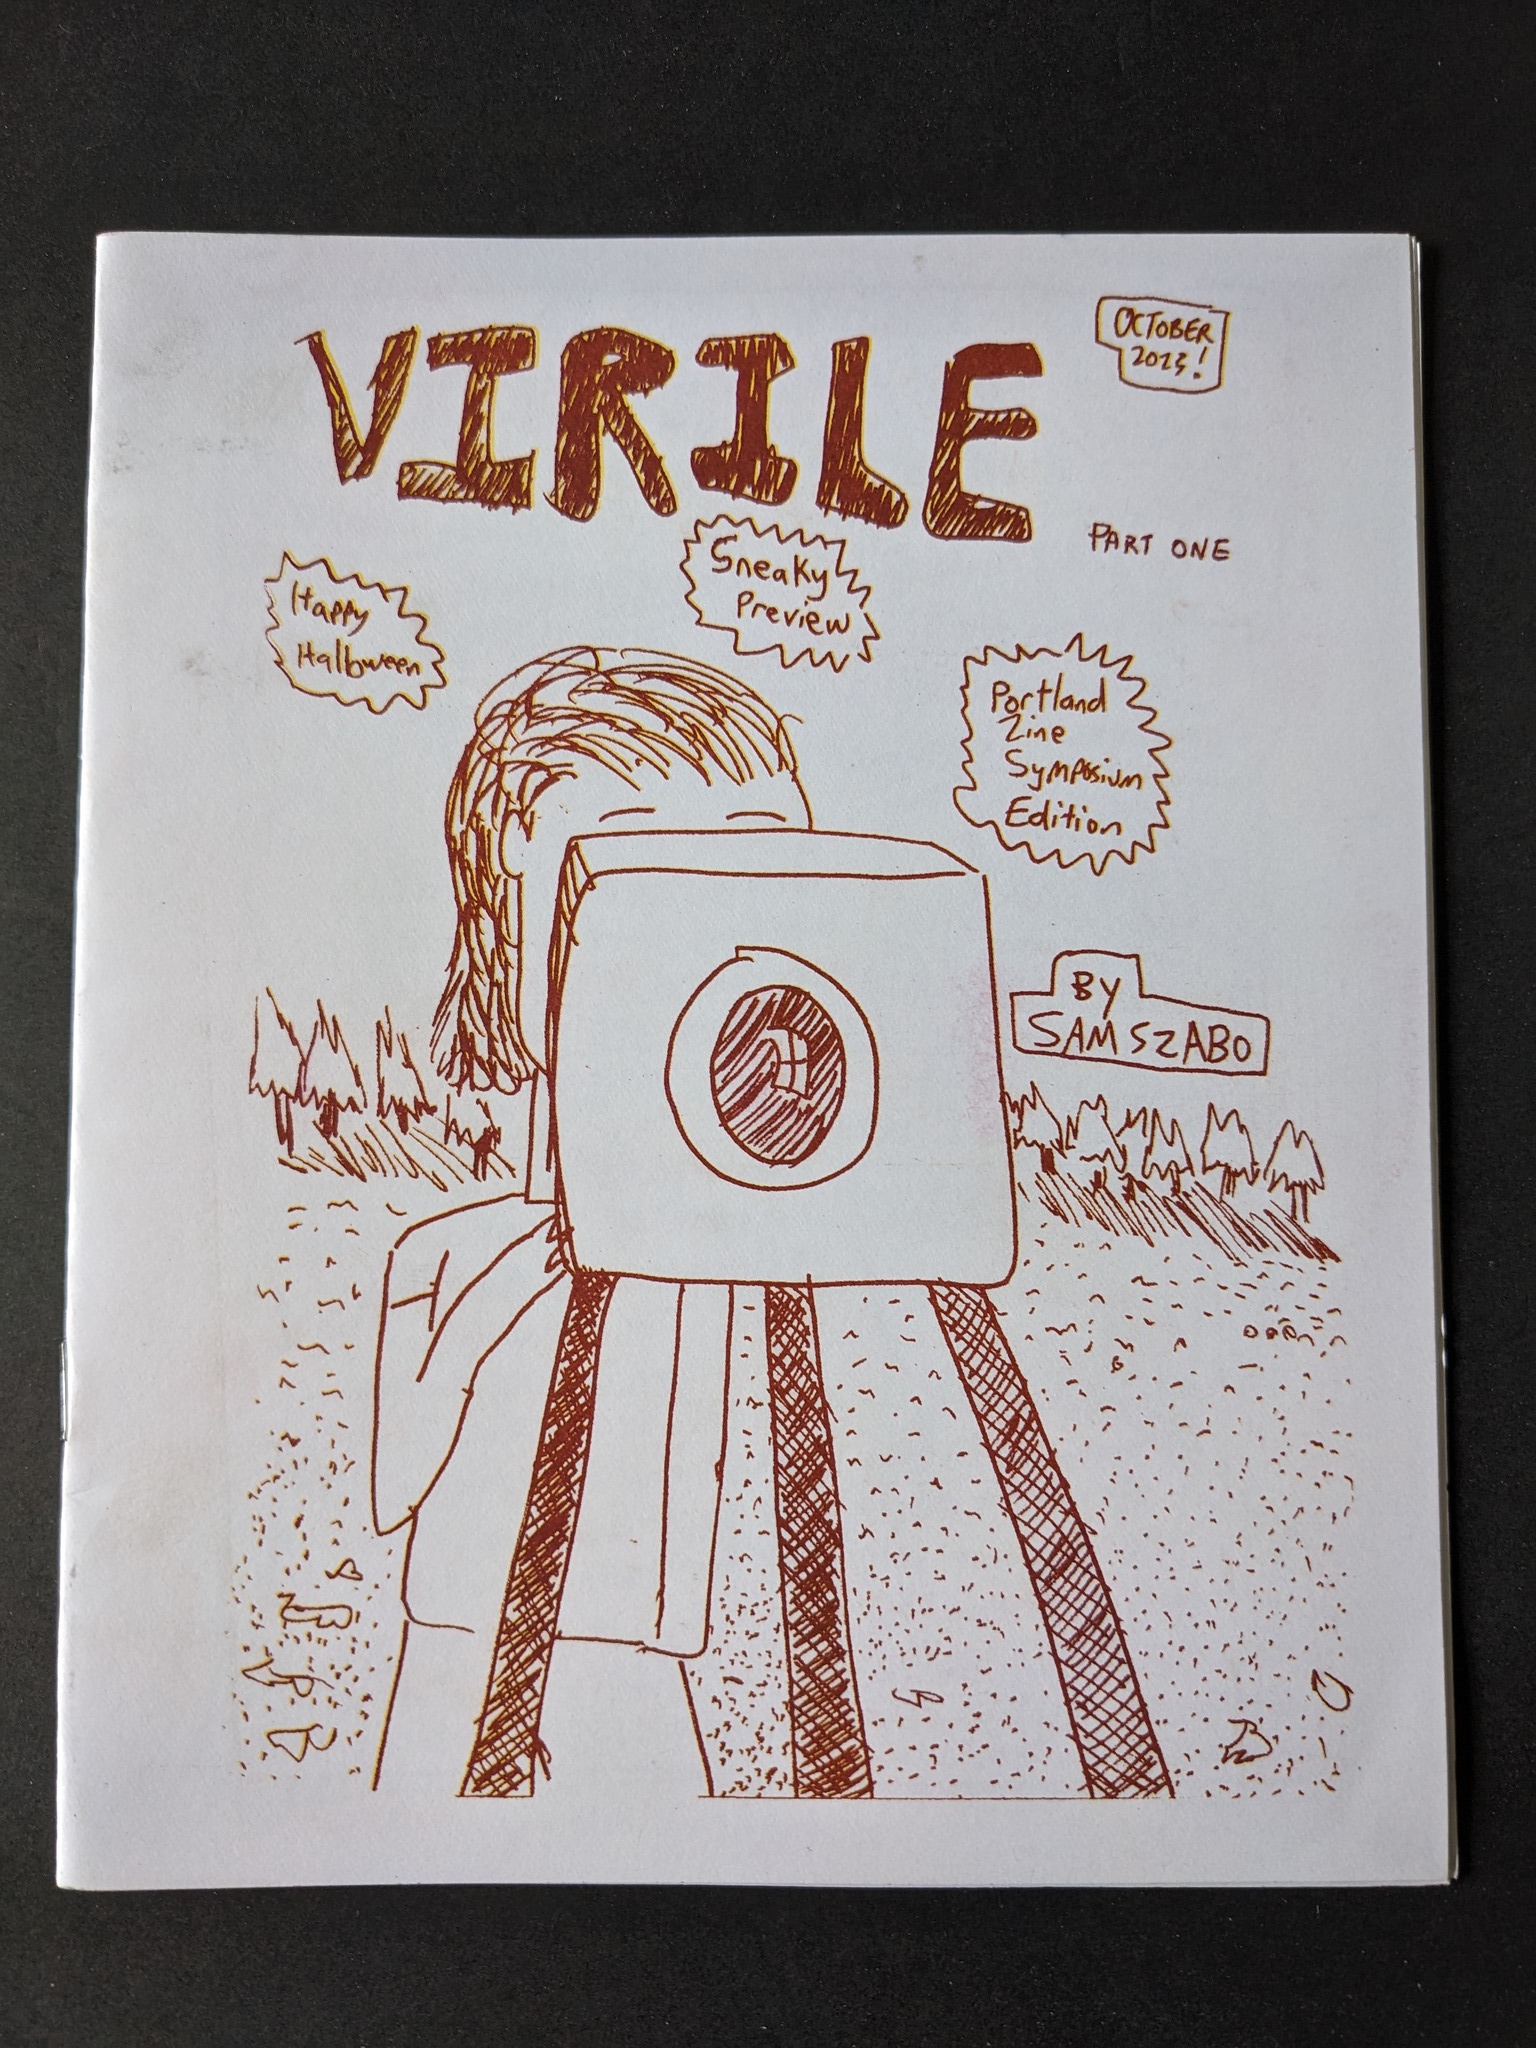 VIRILE
OCTOBER
2023!
PART ONE
Happy
Halloween
Sneaky
Preview
Portland
Zine
Symposium
Edition
BY
SAM SZABO